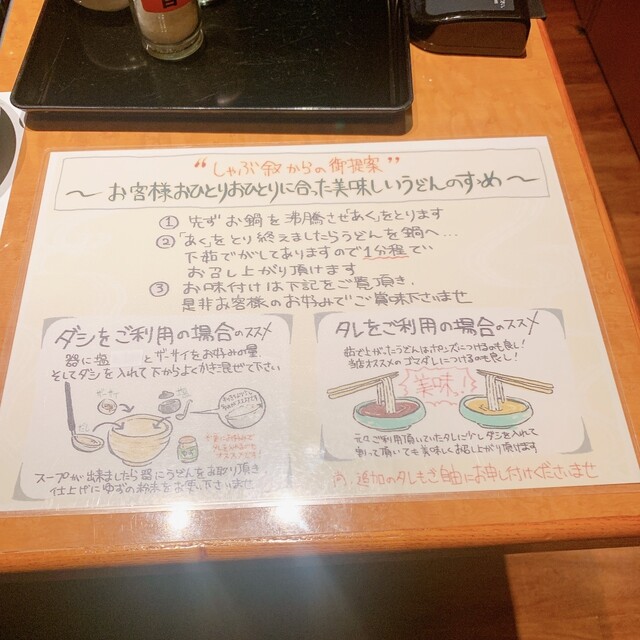 "しゃぶ叙からの御提案"
〜 お客様おひとりおひとりに合った美味しいうどんのすゝめ 〜
① 先ずお鍋を沸騰させ「あく」をとります
② 「あく」をとり終えましたらうどんを鍋へ…
下茹でがしてありますので1分程で
お召し上がり頂けます
③ お味付けは下記をご覧頂き、
是非お客様のお好みでご賞味下さいませ
ダシをご利用の場合のススメ
器に塩 とザーサイをお好みの量
そしてダシを入れて下からよくかき混ぜて下さい
スープが出来ましたら器にうどんをお取り頂き
仕上げにゆずの粉末をお使い下さいませ
タレをご利用の場合のススメ
茹で上がったうどんはポンズにつけるのも良し!
当店オススメのゴマダレにつけるのも良し!
美味
元々ご利用頂いていたタレに少しダシを入れて
割って頂いても美味しくお召し上がり頂けます
尚、追加のタレもご自由にお申し付けくださいませ